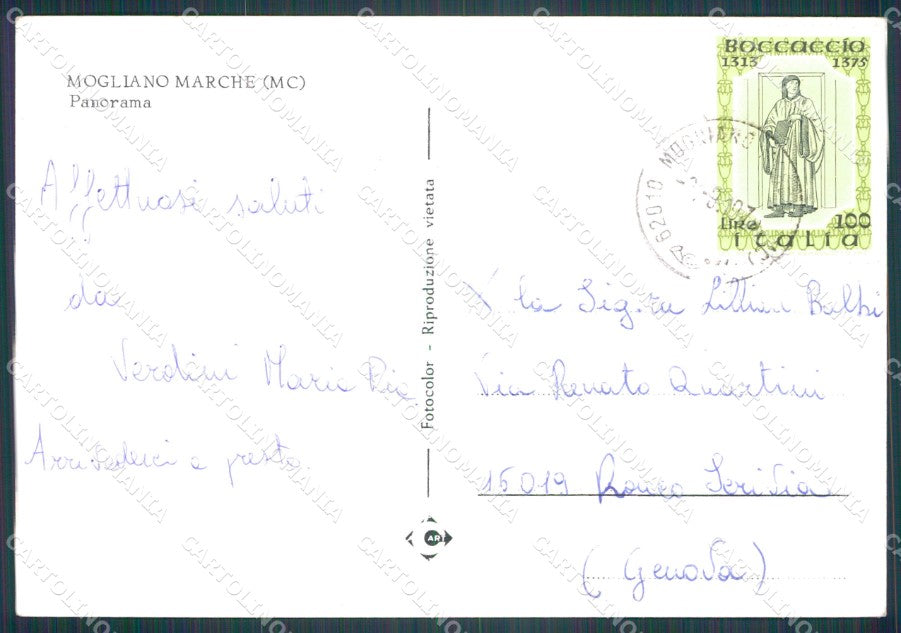 MOGLIANO MARCHE (MC)
Panorama
Affettuosi saluti
da
Verdini Maria Pia
Arrivederci a presto.
Fotocolor - Riproduzione vietata
AR
BOCCACCIO
1313 1375
LIRE 100
ITALIA
62010 MOGLIANO
la Sig.ra Lillian Balbi
Via Renato Quartini
15019 Ronco Scrivia
(Genova)
CARTOLINOMANIA